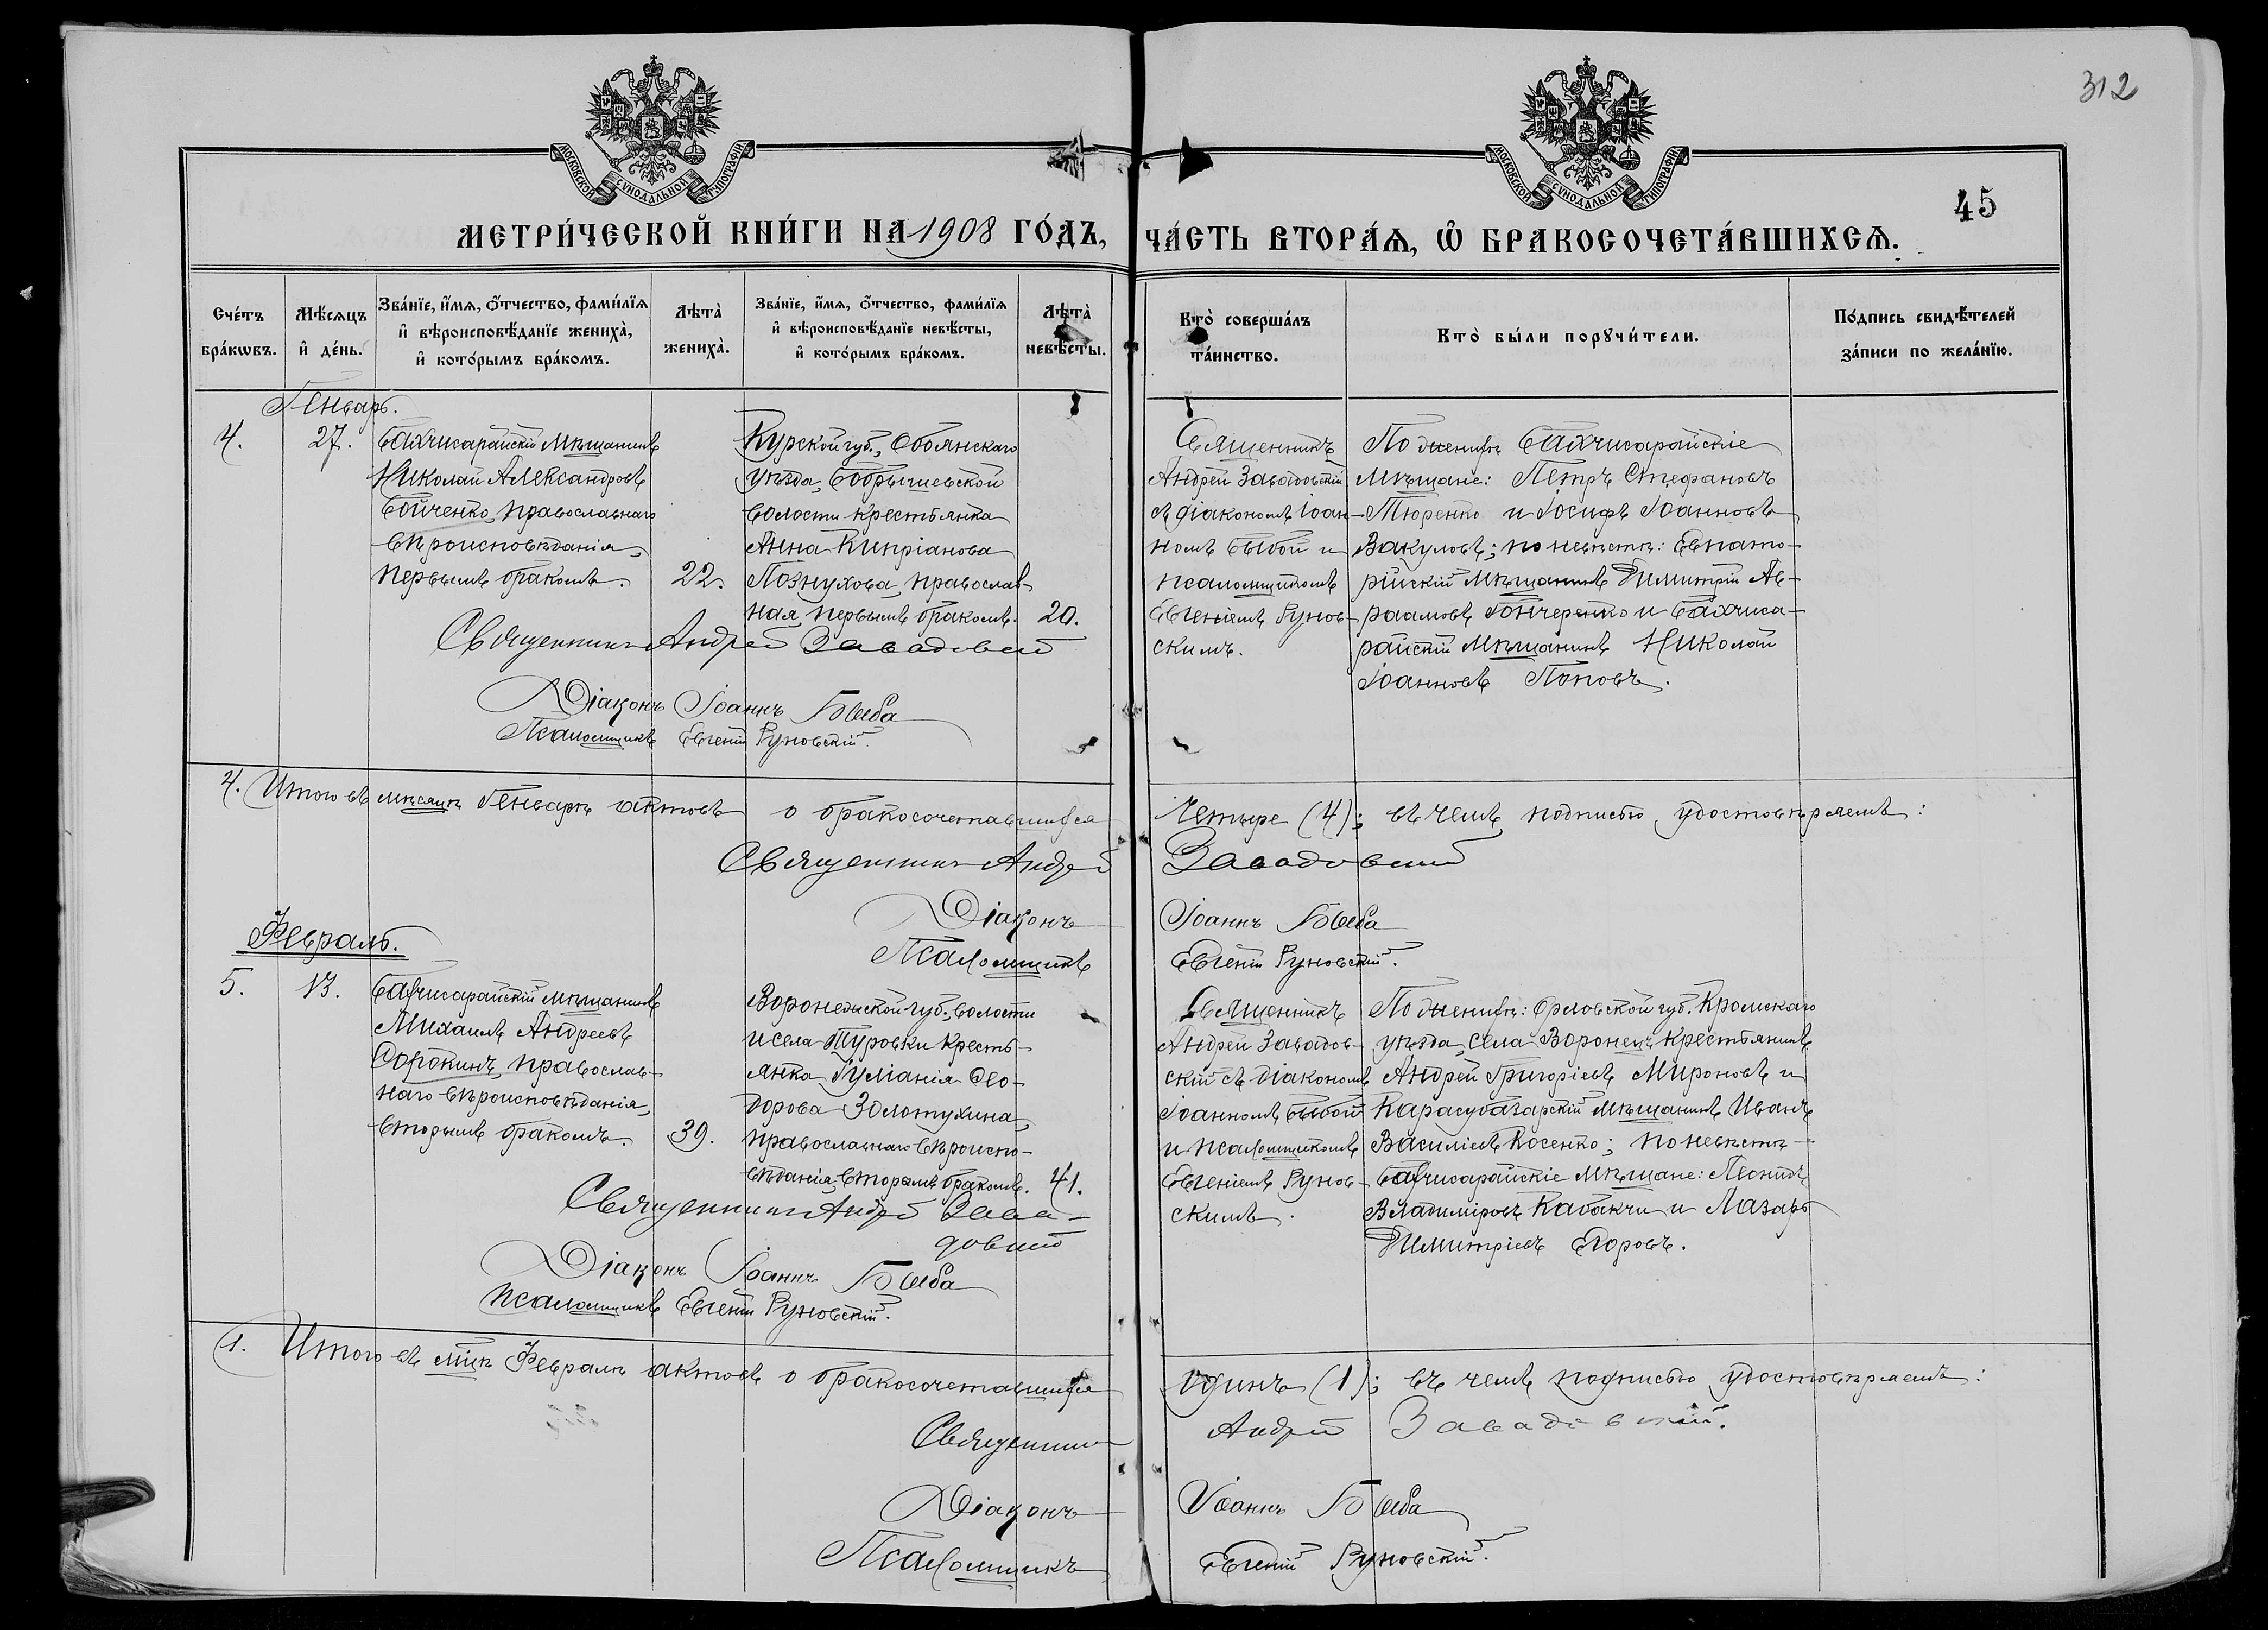 312
МОСКОВСКОЙ СѴНОДАЛЬНОЙ ТИПОГРАФІИ
МОСКОВСКОЙ СѴНОДАЛЬНОЙ ТИПОГРАФІИ
45
МЕТРИ́ЧЕСКОЙ КНИ́ГИ НА 1908 ГО́ДЪ,
ЧА́СТЬ ВТОРА́Ѧ, Ѿ БРАКОСОЧЕТА́ВШИХСѦ.
Сче́тъ
бра́кωвъ.
Мѣ́сѧцъ
и҆ де́нь.
Зва́нїе, и҆́мѧ, ѻ҆́тчество, фами́лїѧ
и҆ вѣроисповѣ́данїе жениха̀,
и҆ кото́рымъ бра́комъ.
Лѣта̀
жениха̀.
Зва́нїе, и҆́мѧ, ѻ҆́тчество, фами́лїѧ
и҆ вѣроисповѣ́данїе невѣ́сты,
и҆ кото́рымъ бра́комъ.
Лѣта̀
невѣ́сты.
Кто̀ соверша́лъ
та́инство.
Кто̀ бы́ли порꙋчи́тели.
По́дпись свидѣ́телей
за́писи по жела́нїю.
Генварь.
4.
27.
Бахчисарайскій мѣщанинъ
Николай Александровъ
Бойченко, православнаго
вѣроисповѣданія,
первымъ бракомъ.
22.
Курской губ., Обоянскаго
уѣзда, Бобрышевской
волости крестьянка
Анна Кипріанова
Познухова, православ-
ная, первымъ бракомъ.
20.
Священникъ
Андрей Завадовскій
съ діакономъ Іоан-
номъ Быбой и
псаломщикомъ
Евгеніемъ Рунов-
скимъ.
По женихѣ Бахчисарайскіе
мѣщане: Петръ Стефановъ
Тюренко и Іосифъ Іоанновъ
Вакуловъ; по невѣстѣ: Евпато-
рійскій мѣщанинъ Димитрій Ав-
раамовъ Гончеренко и Бахчиса-
райскій мѣщанинъ Николай
Іоанновъ Поповъ.
Священникъ Андрей Завадовскій
Діаконъ Іоаннъ Быба
Псаломщикъ Евгеній Руновскій.
4. Итого въ мѣсяцѣ Генварѣ актовъ о бракосочетавшихся
Четыре (4); въ чемъ подписью удостовѣряемъ:
Священникъ Андрей Завадовскій
Діаконъ Іоаннъ Быба
Псаломщикъ Евгеній Руновскій.
Февраль.
5.
13.
Бахчисарайскій мѣщанинъ
Михаилъ Андреевъ
Сорокинъ, православ-
наго вѣроисповѣданія,
вторымъ бракомъ.
39.
Воронежской губ., волости
и села Туровки кресть-
янка Іуліанія Ѳео-
дорова Золотухина,
православнаго вѣроиспо-
вѣданія, вторымъ бракомъ.
41.
Священникъ
Андрей Завадов-
скій съ діакономъ
Іоанномъ Быбой
и псаломщикомъ
Евгеніемъ Рунов-
скимъ.
По женихѣ: Орловской губ. Кромскаго
уѣзда, села Воронецъ крестьянинъ
Андрей Григоріевъ Мироновъ и
Карасубазарскій мѣщанинъ Иванъ
Василіевъ Косенко; по невѣстѣ
Бахчисарайскіе мѣщане: Леонидъ
Владиміровъ Кабакчи и Лазарь
Димитріевъ Егоровъ.
Священникъ Андрей Зава-
довскій
Діаконъ Іоаннъ Быба
Псаломщикъ Евгеній Руновскій.
1. Итого въ мцѣ Февралѣ актовъ о бракосочетавшихся
Одинъ (1); въ чемъ подписью удостовѣряемъ:
Священникъ Андрей Завадовскій.
Діаконъ Іоаннъ Быба
Псаломщикъ Евгеній Руновскій.